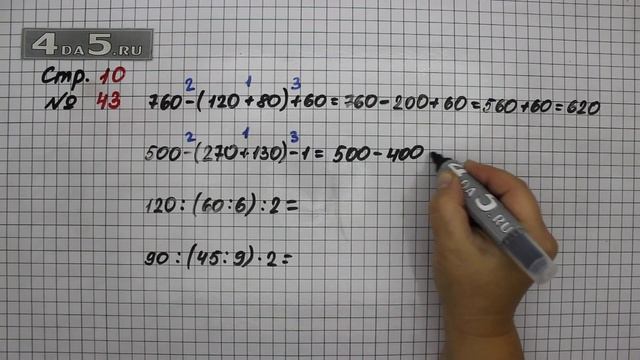 4DA5.RU
Стр. 10
№ 43
2 1 3
760-(120+80)+60=760-200+60=560+60=620
2 1 3
500-(270+130)-1=500-400
120:(60:6):2=
90:(45:9)·2=
4DA5.RU